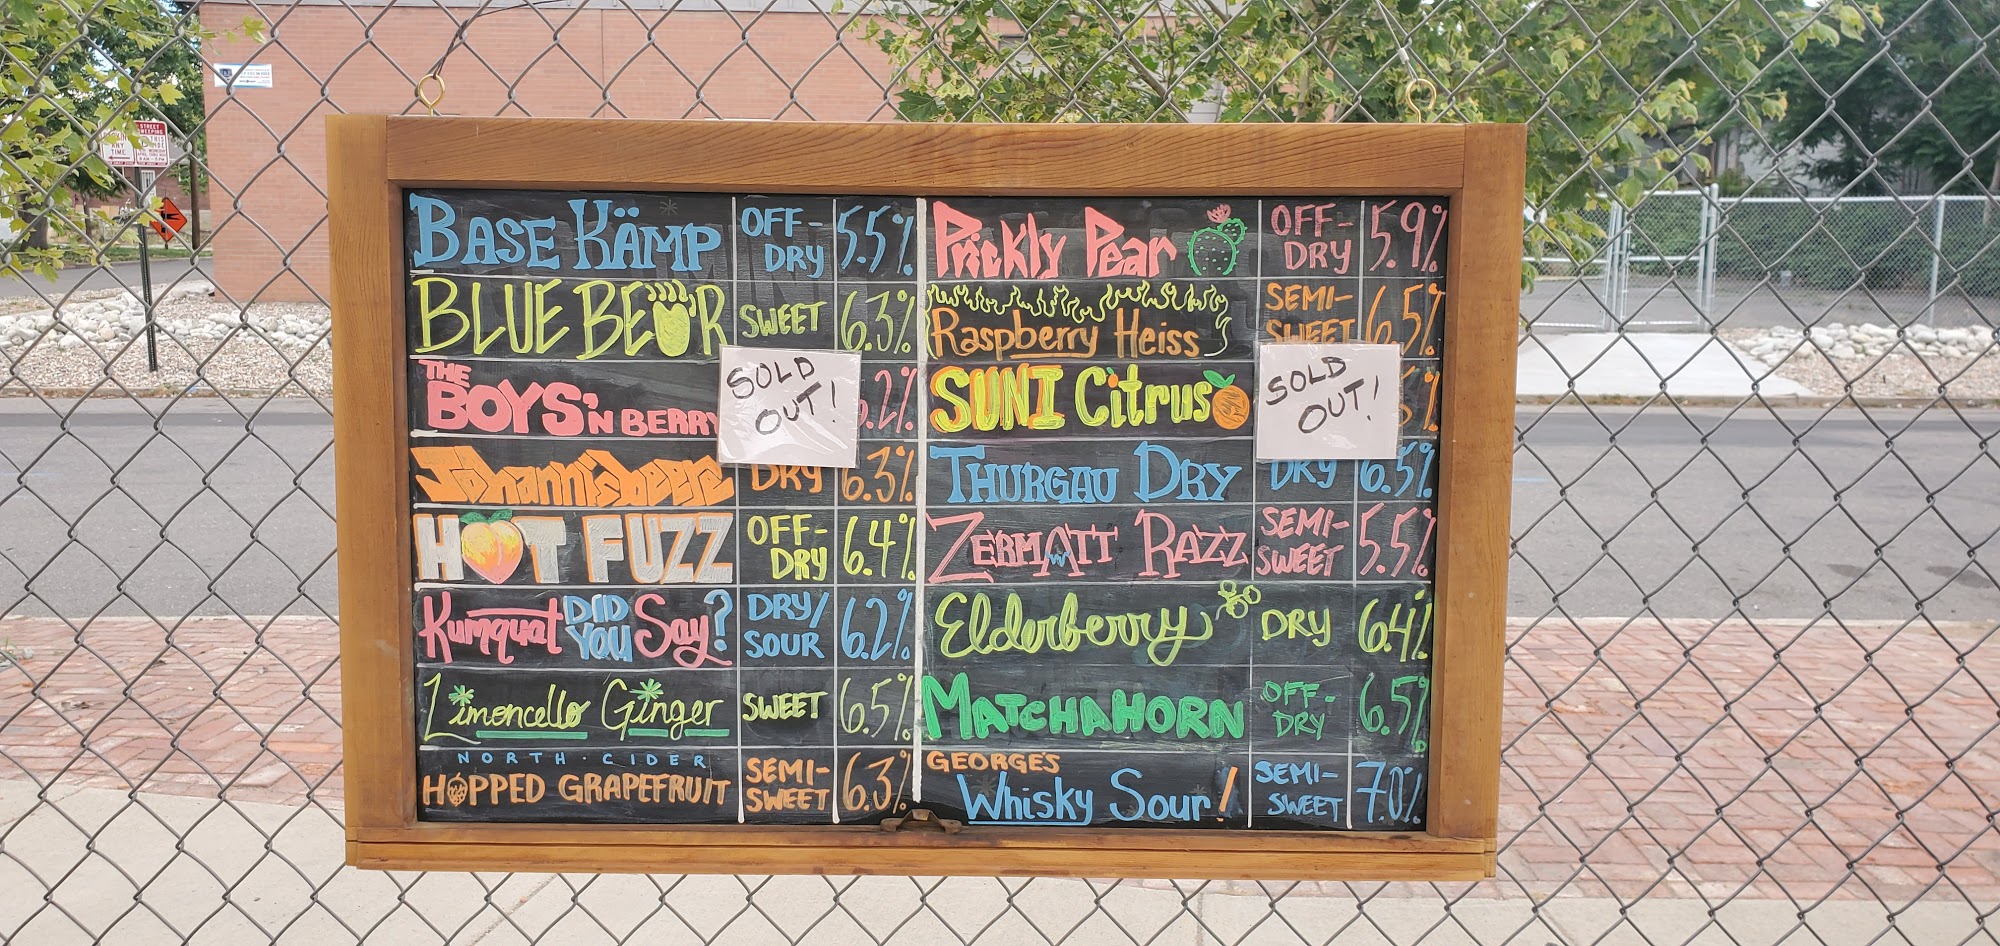 STREET
SWEEPING
ANY
TIME
BASE KÄMP OFF-DRY 5.5%
BLUE BEAR SWEET 6.3%
THE
BOYS'N BERRY .2%
SOLD
OUT!
Johannisbeere DRY 6.3%
HOT FUZZ OFF-DRY 6.4%
Kumquat DID YOU Say? DRY/SOUR 6.2%
Limoncello Ginger SWEET 6.5%
NORTH · CIDER
HOPPED GRAPEFRUIT SEMI-SWEET 6.3%
Prickly Pear OFF-DRY 5.9%
Raspberry Heiss SEMI-SWEET 6.5%
SUNI Citrus
SOLD
OUT!
THURGAU DRY DRY 6.5%
ZERMATT RAZZ SEMI-SWEET 5.5%
Elderberry DRY 6.4%
MATCHAHORN OFF-DRY 6.5%
GEORGE'S
Whisky Sour! SEMI-SWEET 7.0%